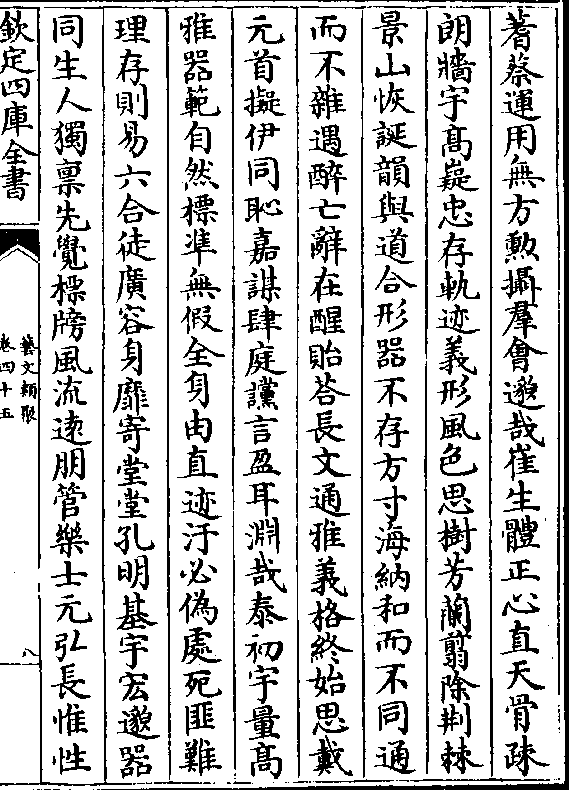 蓍蔡運用無方動攝羣會邈哉崔生體正心直天骨疎
朗牆宇髙嶷忠存軌迹義形風色思樹芳蘭翦除荆棘
景山恢誕韻與道合形器不存方寸海納和而不同通
而不雜遇醉亡辭在醒貽答長文通雅義格終始思戴
元首擬伊同恥嘉謀肆庭讜言盈耳淵哉泰初宇量髙
雅器範自然標準無假全身由直迹汙必偽處死匪難
理存則易六合徒廣容身靡寄堂堂孔明基宇宏邈器
同生人獨禀先覺標牓風流逺朋管樂士元弘長惟性
欽定四庫全書
藝文類聚
卷四十五
八